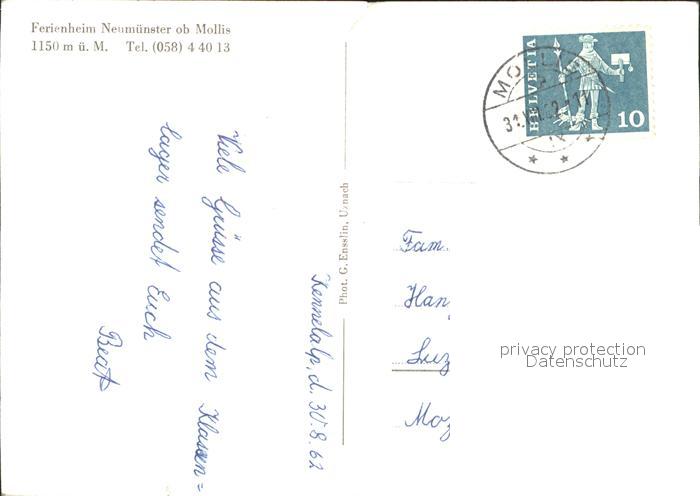 Ferienheim Neumünster ob Mollis
1150 m ü. M. Tel. (058) 4 40 13
Kennelalp, d. 30.8.62
Viele Grüsse aus dem Klassen=
lager sendet Euch
Beat
Phot. G. Ensslin, Uznach
HELVETIA
10
MOLL
Fam.
Han
Luz
Moz
privacy protection
Datenschutz